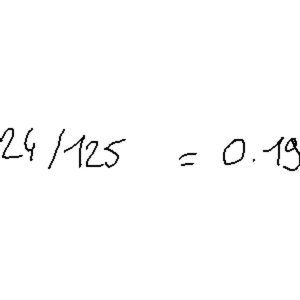 24/125 = 0.19